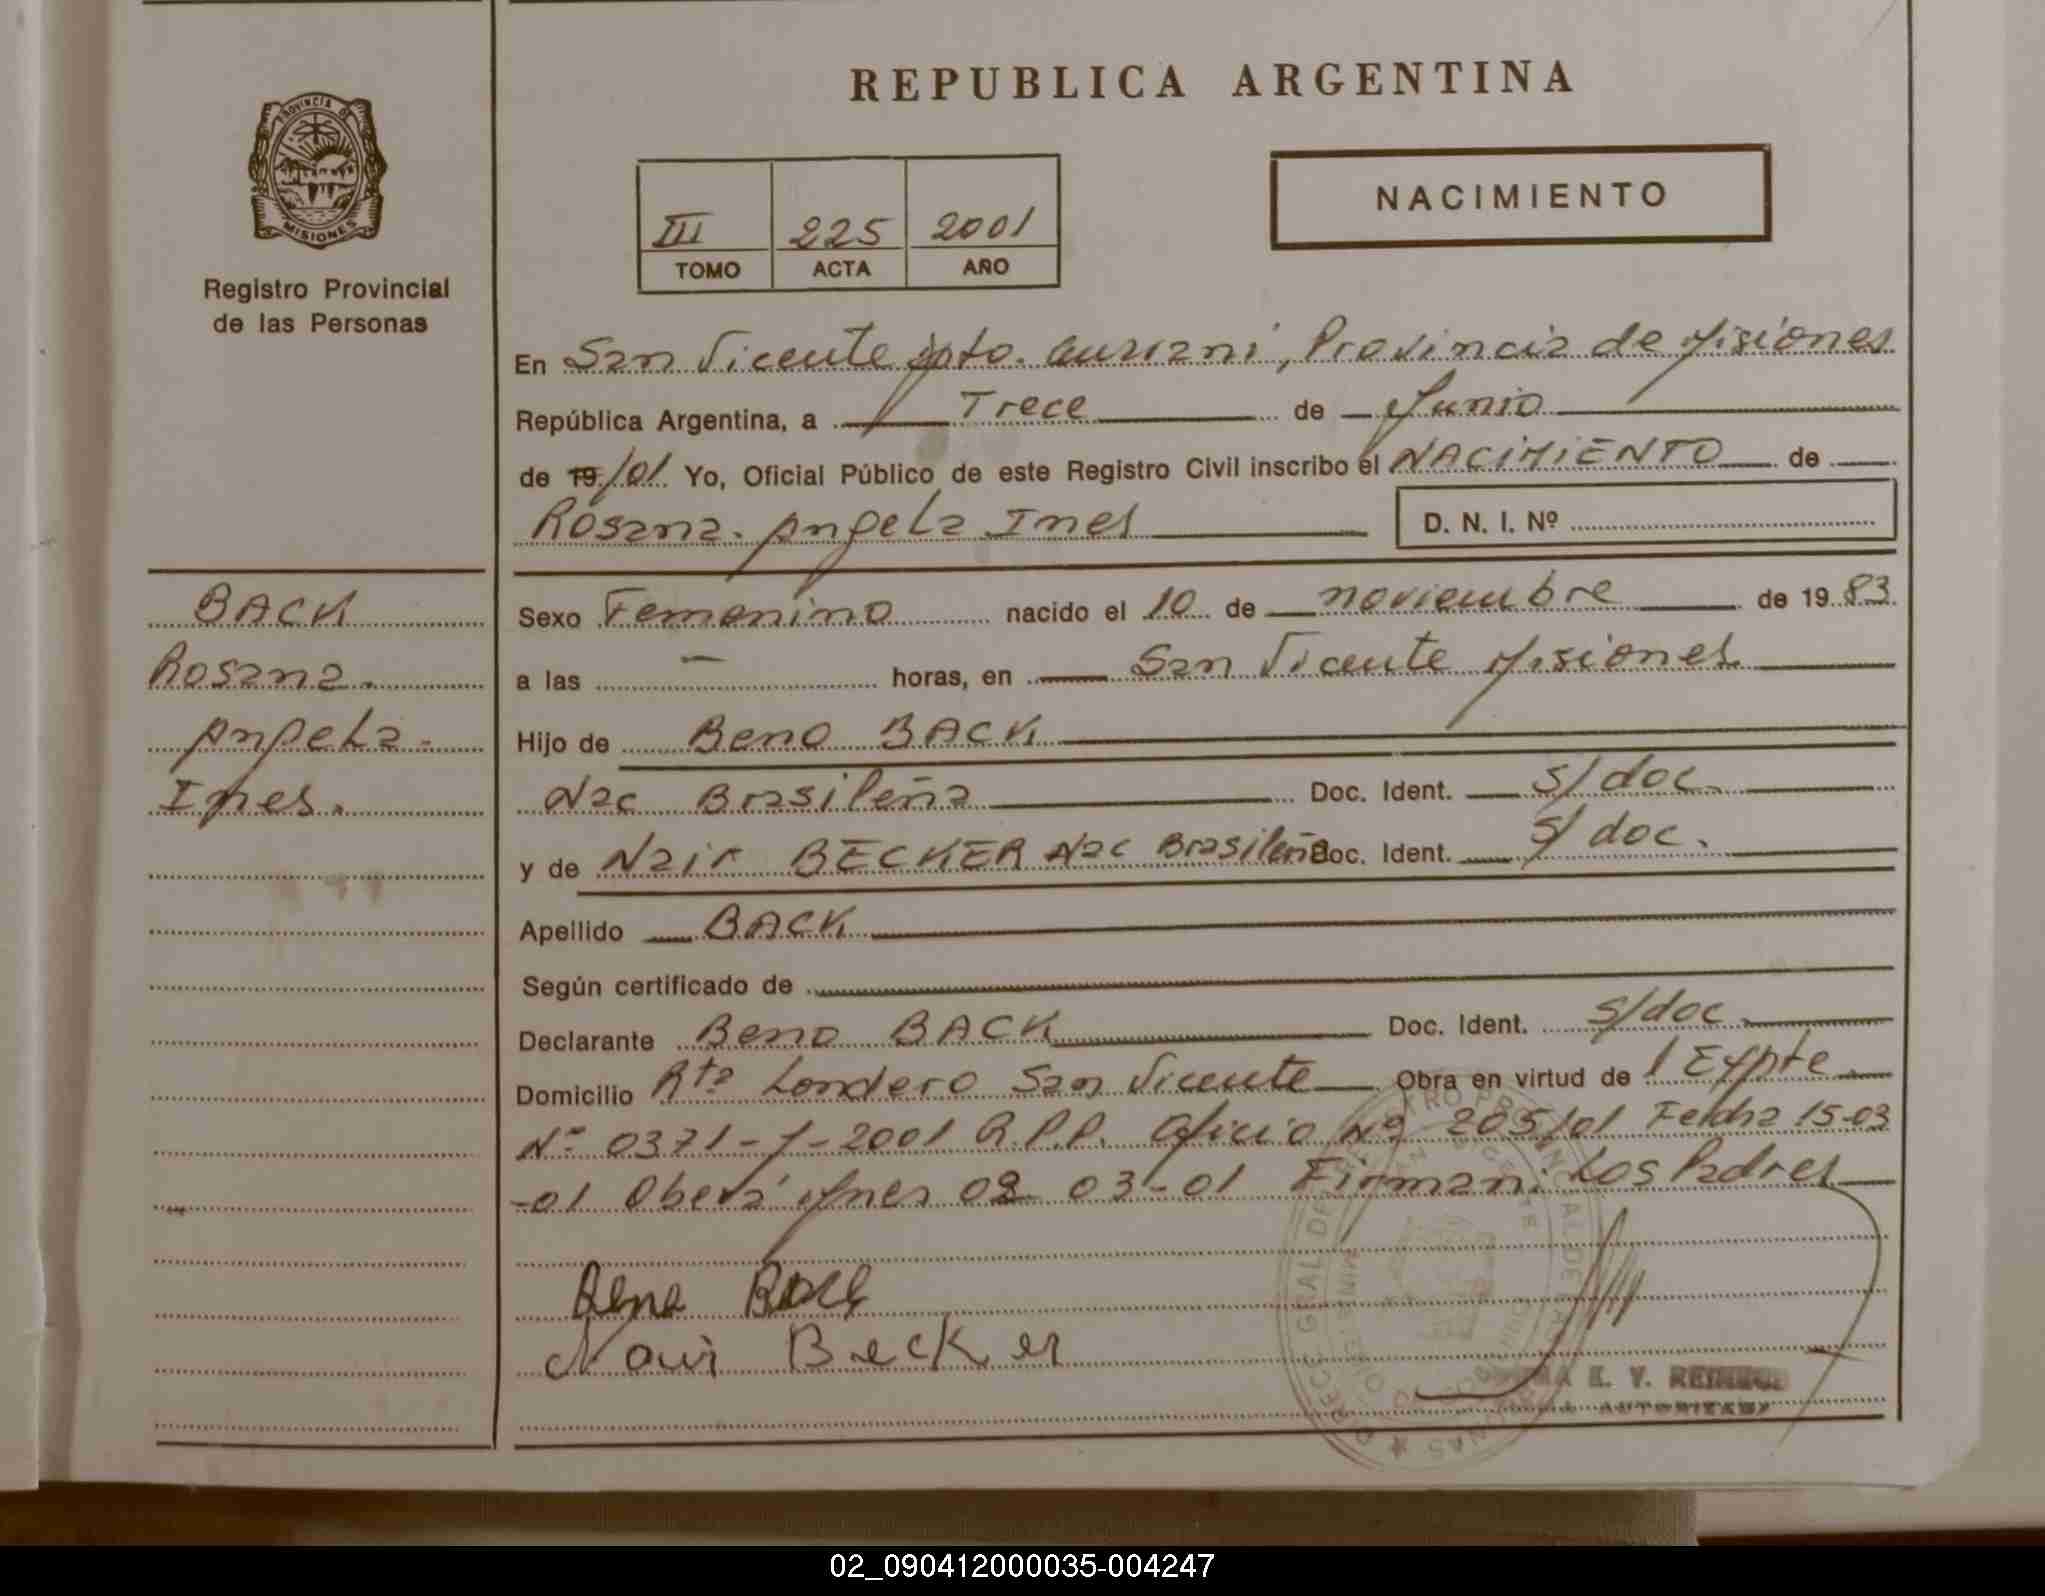 REPUBLICA ARGENTINA
PROVINCIA DE MISIONES
Registro Provincial
de las Personas
III 225 2001
TOMO ACTA AÑO
NACIMIENTO
En San Vicente Dpto. Guarani, Provincia de Misiones
República Argentina, a Trece de Junio
de 19/01 Yo, Oficial Público de este Registro Civil inscribo el NACIMIENTO de
Rosana. Angela Ines
D. N. I. Nº
BACK
Rosana.
Angela.
Ines.
Sexo Femenino nacido el 10 de noviembre de 1983
a las — horas, en San Vicente Misiones
Hijo de Beno BACK
Nac Brasileña Doc. Ident. s/doc.
y de Nair BECKER Nac Brasileña Doc. Ident. s/doc.
Apellido BACK
Según certificado de
Declarante Beno BACK Doc. Ident. s/doc
Domicilio Rta Londero San Vicente Obra en virtud de 1 Expte.
Nº 0371-J-2001 R.P.P. Oficio Nº 205/01 Fecha 15-03
-01 Oberá Mnes 03-01 Firman: Los Padres
Beno Back
Nair Becker
E. Y.
AUTORIZADA
02_090412000035-004247